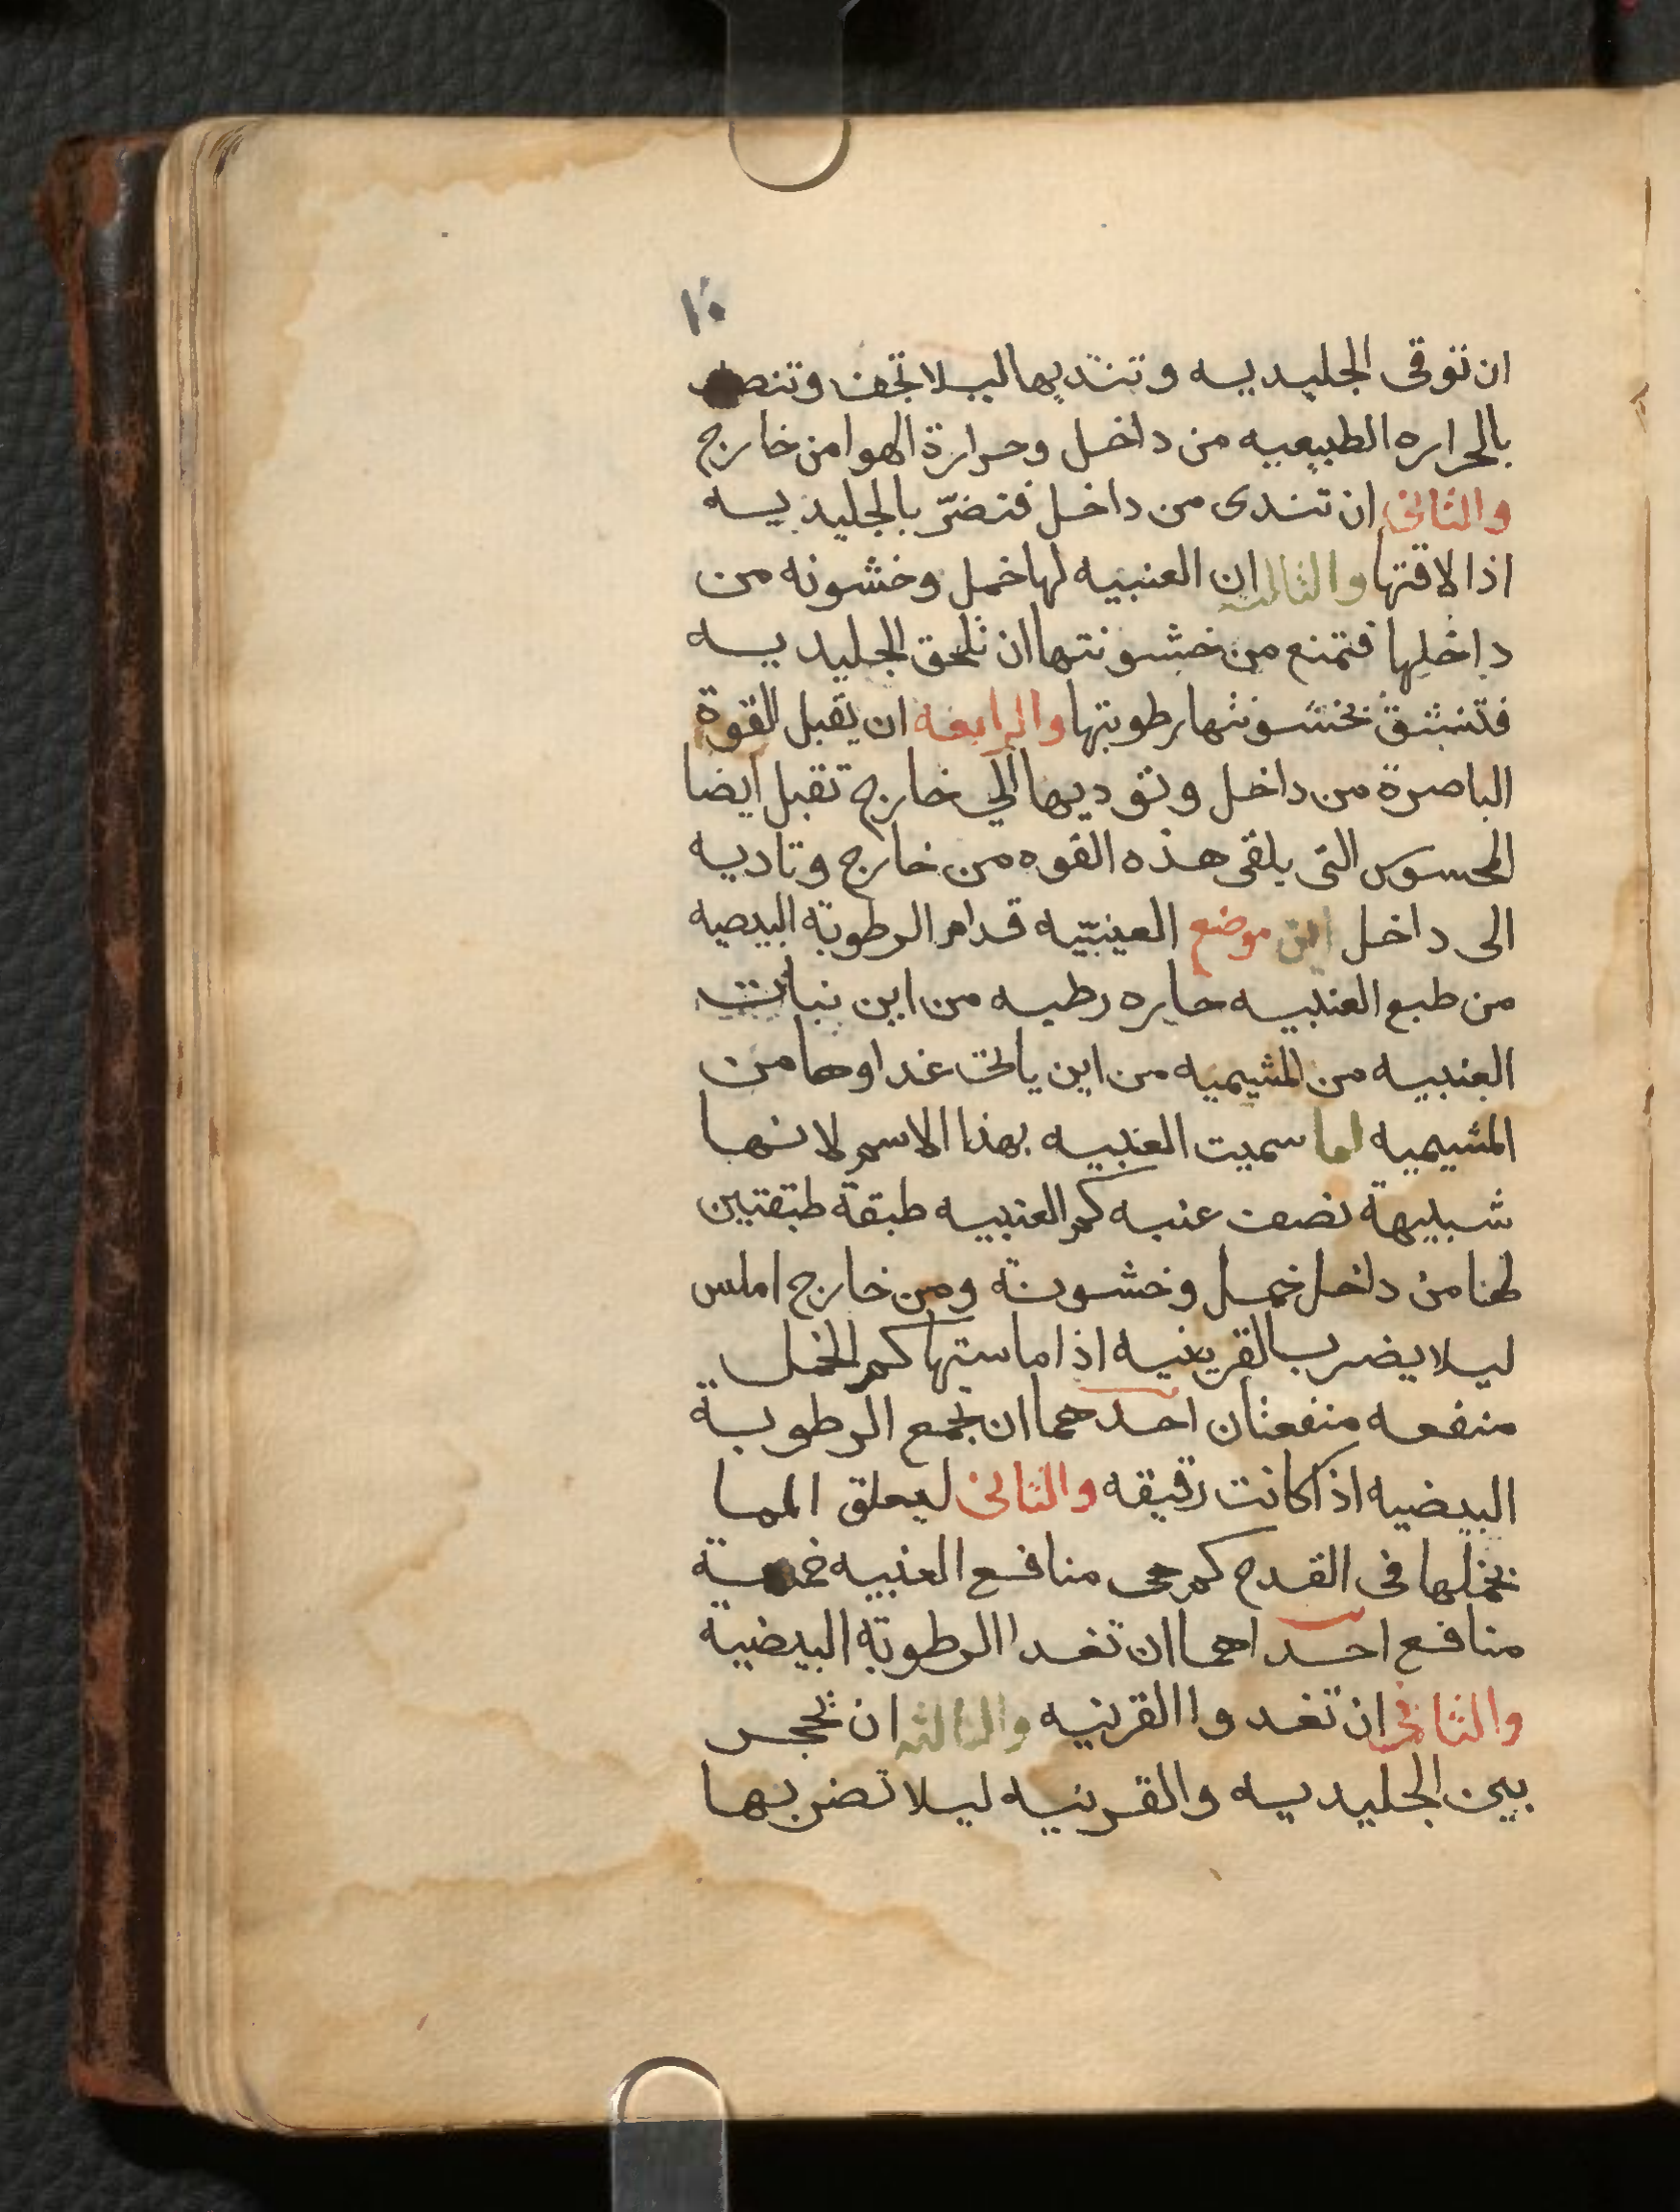 ١٠
ان توقى الجليديه وتنديها ليلا تجف
بالحراره الطبيعيه من داخل وحرارة الهوا من خارج
والثانى ان تندى من داخل فتضرّ بالجليديه
اذا لاقتها والثالثه ان العنبيه لها خمل وخشونه من
داخلها فتمنع من خشونتها ان تلحق الجليديه
فتنشق بخشونتها رطوبتها والرابعه ان يقبل القوة
الباصرة من داخل وتوديها الي خارج تقبل ايضا
المحسوس التى يلقى هذه القوه من خارج وتاديه
الى داخل اين موضع العينبّيه قدام الرطوبة البيضيه
من طبع العنبيه حاره رطبه من اين نباتت
العنبيه من المشيميه من اين ياتى غداوها من
المشيميه لما سميت العنبيه بهذا الاسم لانها
شبيهة نصف عنبه كم العنبيه طبقة طبقتين
لهنا من داخل خمل وخشونة ومن خارج املس
ليلا يضر بالقرينيه اذا ماستها كم للخمل
منفعه منفعتان احدهما ان تجمع الرطوبة
البيضيه اذا كانت رقيقه والثانى ليعلق الما
بخملها فى القدح كم هى منافع العنبيه خمسة
منافع احداهما ان تغدا الرطوبة البيضية
والثانى ان تغدوا القرنيه والثالثه ان تحجر
بين الجليديه والقرنيه ليلا تضر بها